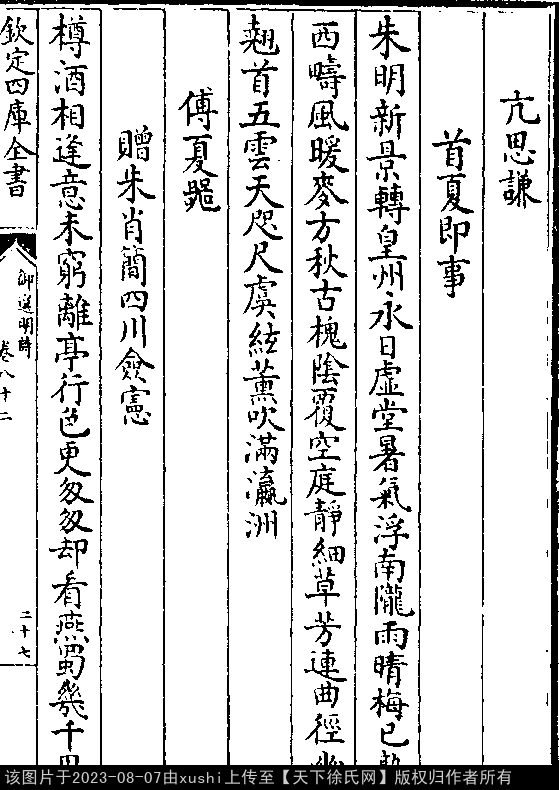 亢思謙
首夏即事
朱明新景轉皇州永日虛堂暑氣浮南隴雨晴梅已
西疇風暖麥方秋古槐陰覆空庭靜細草芳連曲徑
翹首五雲天咫尺虞絃薰吹滿瀛洲
傅夏器
贈朱肖簡四川僉憲
樽酒相逢意未窮離亭行色更匆匆却看燕蜀幾千里
欽定四庫全書
御選明詩
卷八十二
二十七
该图片于2023-08-07由xushi上传至【天下徐氏网】版权归作者所有